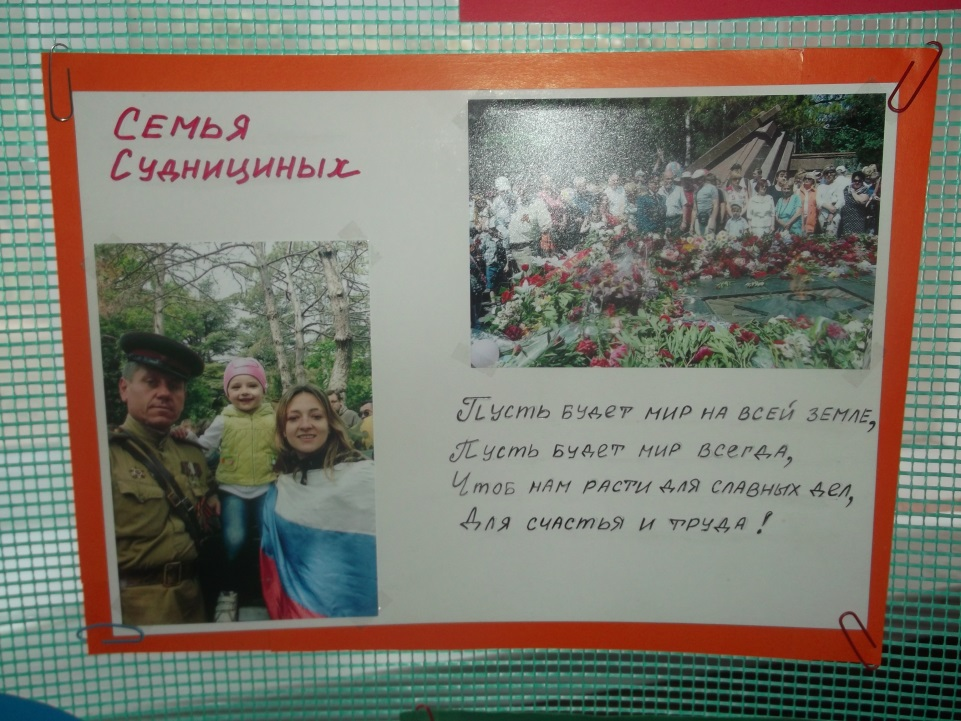 Семья
Суднициных
Пусть будет мир на всей земле,
Пусть будет мир всегда,
Чтоб нам расти для славных дел,
Для счастья и труда!